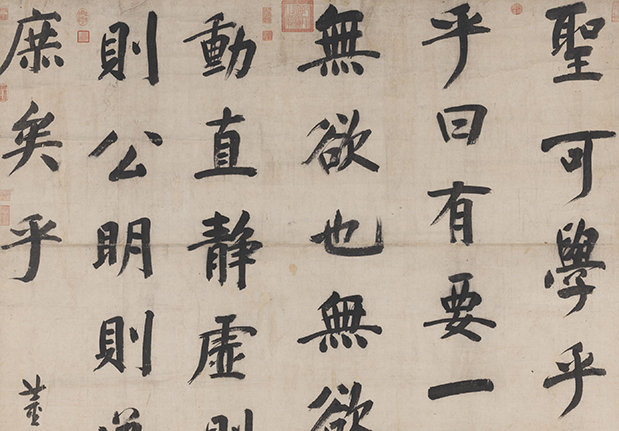 聖可學乎
乎曰有要一
無欲也無欲
動直静虚則
則公明則
庶矣乎
董